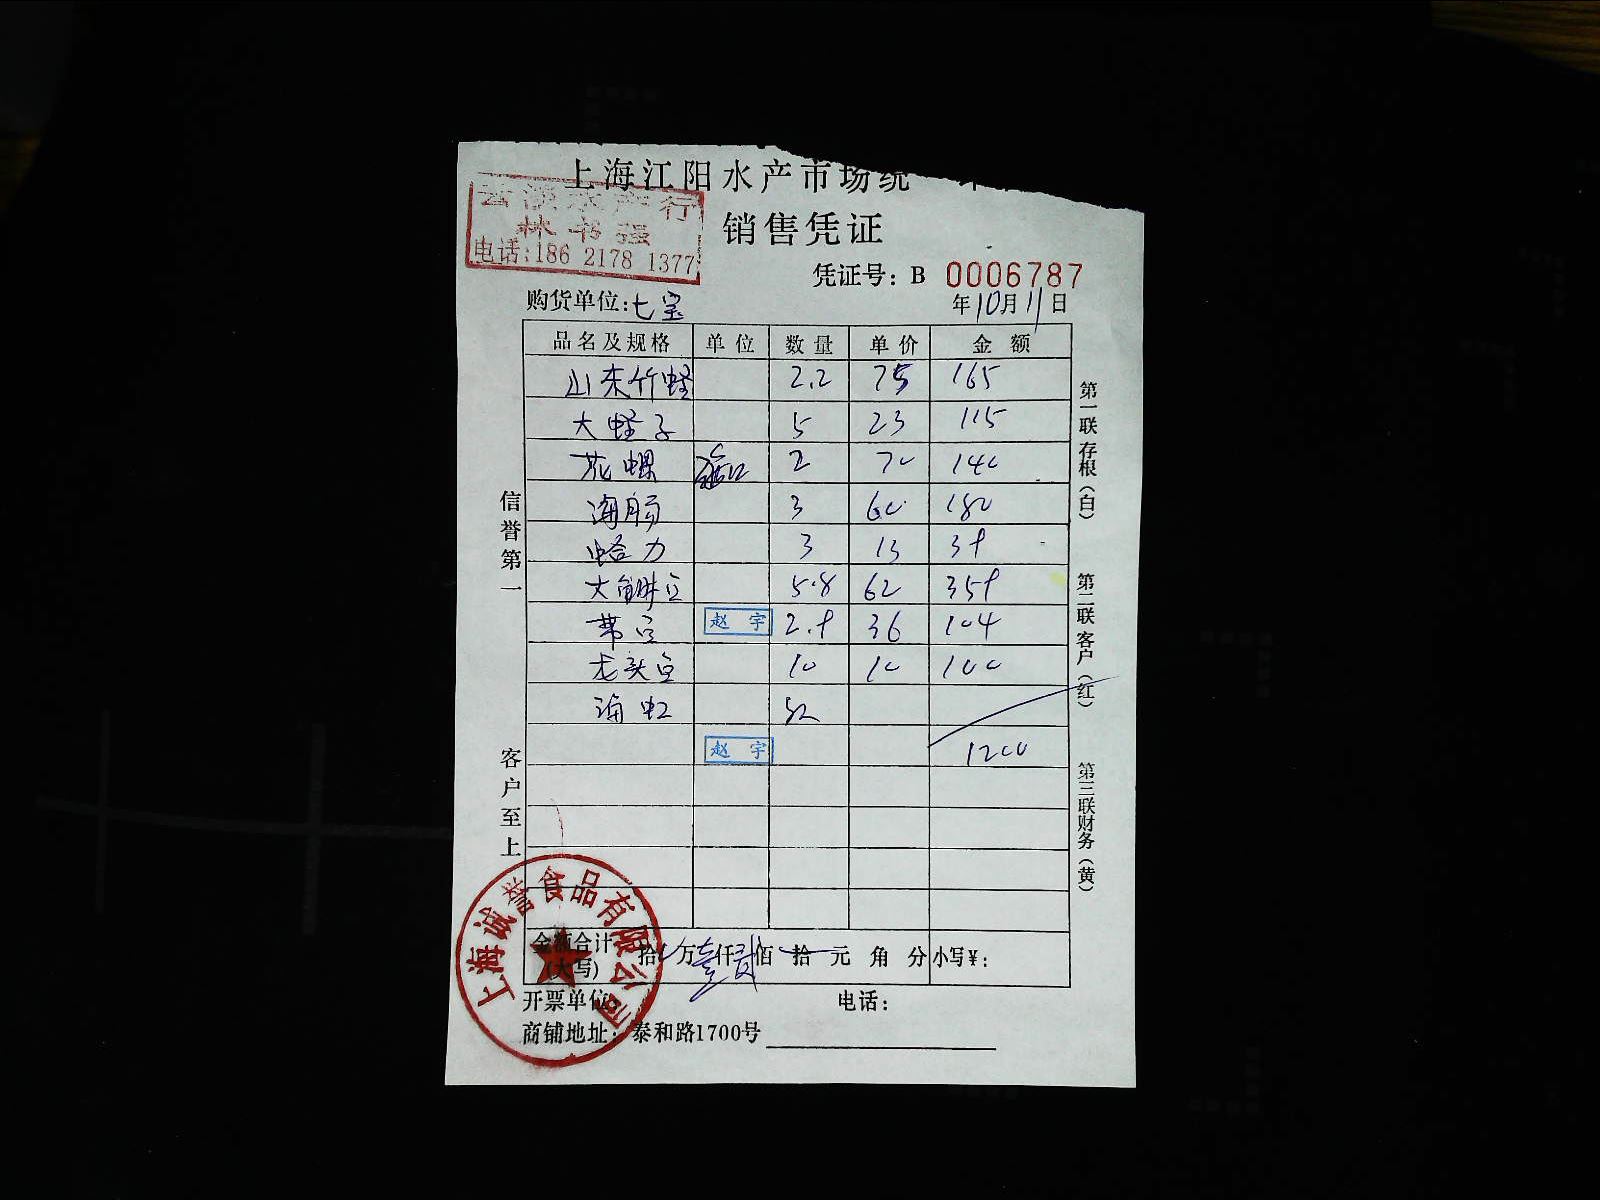 上海江阳水产市场统一
云溪水产行
林书强
电话:186 2178 1377
销售凭证
凭证号: B 0006787
购货单位:七宝
年10月11日
品名及规格 单位 数量 单价 金额
山东竹蛏 2.2 75 165
大蛏子 5 23 115
花螺 2 70 140
海肠 3 60 180
蛤力 3 13 39
大鲜豆 5.8 62 359
带豆 赵宇 2.9 36 104
龙头豆 10 10 100
海虹
赵宇 1200
信誉第一
客户至上
第一联存根(白)
第二联客户(红)
第三联财务(黄)
金额合计(大写) 拾 万壹仟贰佰 拾 元 角 分 小写¥:
上海诚誉食品有限公司
开票单位: 电话:
商铺地址: 泰和路1700号